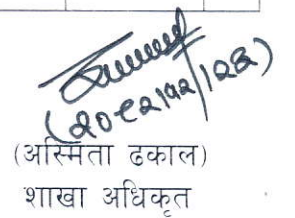 (२०८२।१२।२३)
(अस्मिता ढकाल)
शाखा अधिकृत